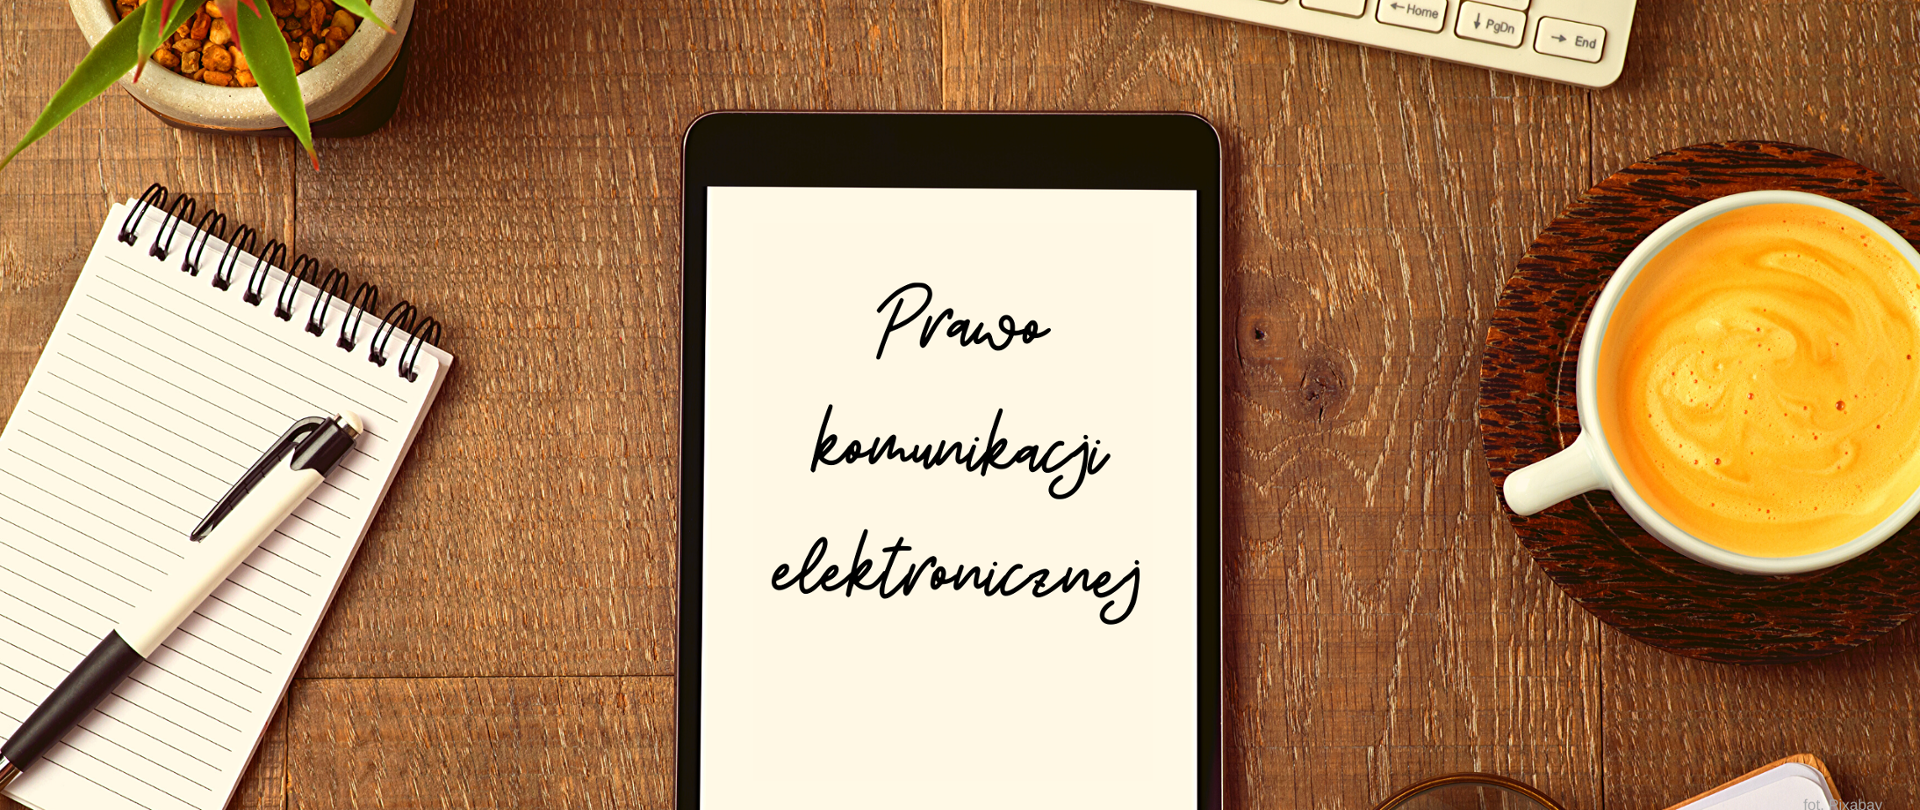 ←Home
↓ PgDn
→ End
Prawo
komunikacji
elektronicznej
fot. Pixabay